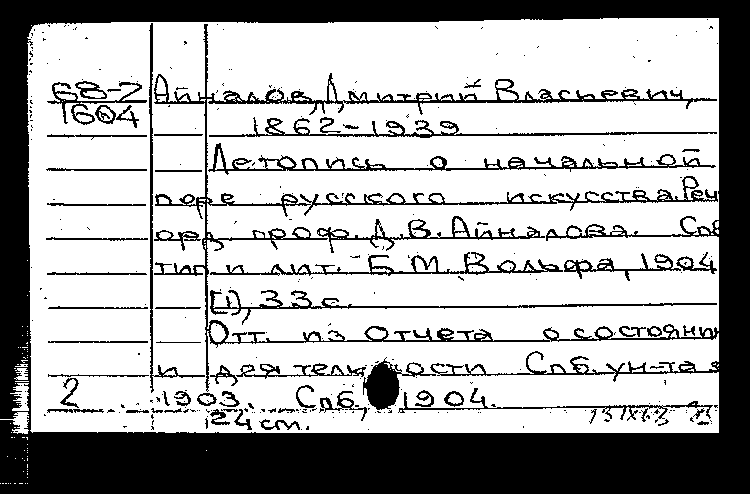 68-7 Айналов, Дмитрий Власьевич,
1604
1862-1939
Летопись о начальной
поре русского искусства. Речь
орд. проф. Д.В. Айналова. Спб
тип и лит. Б.М. Вольфа, 1904
[1], 33 с.
Отт. из Отчета о состоянии
и деятельности Спб. ун-та з
2 1903. Спб., 1904.
24 cm.